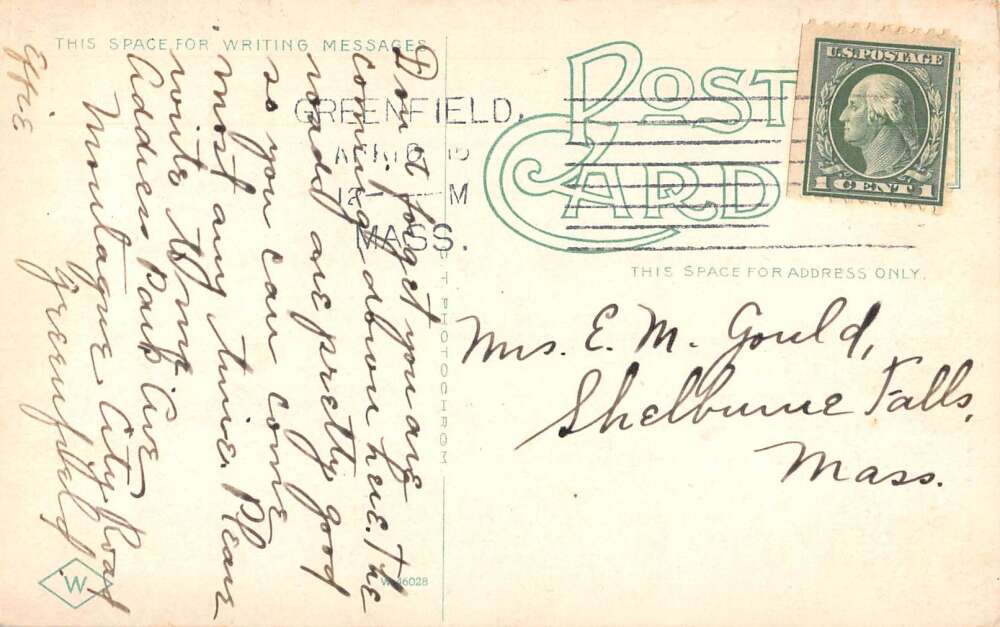 THIS SPACE FOR WRITING MESSAGES
POST
CARD
U.S. POSTAGE
1 CENT 1
GREENFIELD,
12 M
MASS.
THIS SPACE FOR ADDRESS ONLY.
Don't forget you are
coming down here. The
roads are pretty good
so you can come
most any time. Please
write to me
Address Park Ave
Montague City Road
Greenfield.
Effie
Mrs. E. M. Gould,
Shelburne Falls,
Mass.
PHOTOCHROM
W